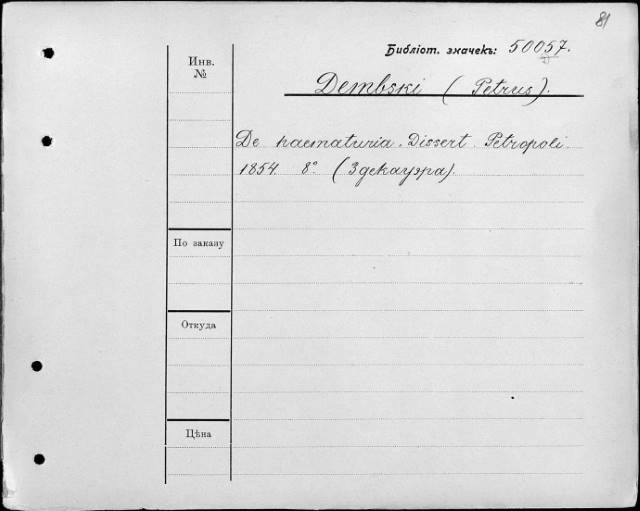 81
Библіот. значекъ: 50057.
Инв. №
Dembski (Petrus).
De haematuria. Dissert. Petropoli.
1854. 8° (Здекауэра).
По заказу
Откуда
Цѣна